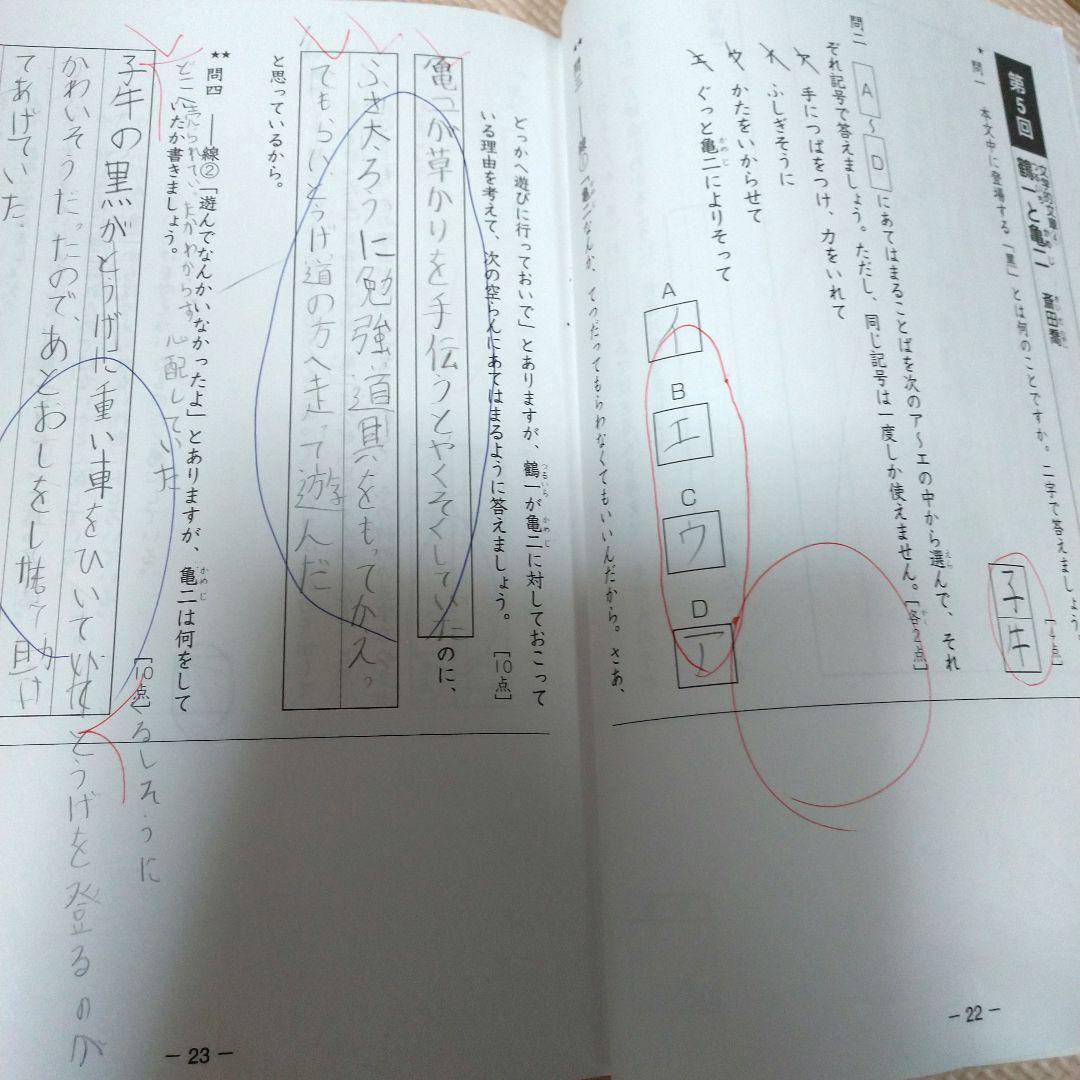 第5回
文学的文章
鶴一と亀二
斎田喬
★
問一 本文中に登場する「黒」とは何のことですか。二字で答えましょう。
[4点]
子牛
問二 A〜Dにあてはまることばを次のア〜エの中から選んで、それ
ぞれ記号で答えましょう。ただし、同じ記号は一度しか使えません。[各2点]
ア 手につばをつけ、力をいれて
イ ふしぎそうに
ウ かたをいからせて
エ ぐっと亀二によりそって
A イ
B エ
C ウ
D ア
★★
線①「亀二なんか、てつだってもらわなくてもいいんだから。さあ、
―22―
とっかへ遊びに行っておいで」とありますが、鶴一が亀二に対しておこって
いる理由を考えて、次の空らんにあてはまるように答えましょう。[10点]
亀二が草かりを手伝うとやくそくしていた
のに、
ふさ太ろうに勉強道具をもってかえっ
てもらいとうげ道の方へ走って遊んだ
と思っているから。
★★
問四 ――線②「遊んでなんかいなかったよ」とありますが、亀二は何をして
いたか書きましょう。
[10点]
心配していた
子牛の黒がとうげに重い車をひいて
くるしそうに
とうげを登るのが
かわいそうだったので、あとおしをし
てあげていた
―23―